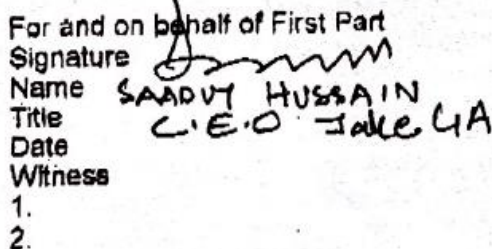 For and on behalf of First Part
Signature
Name SAADUT HUSSAIN
Title C.E.O Jake GA
Date
Witness
1.
2.